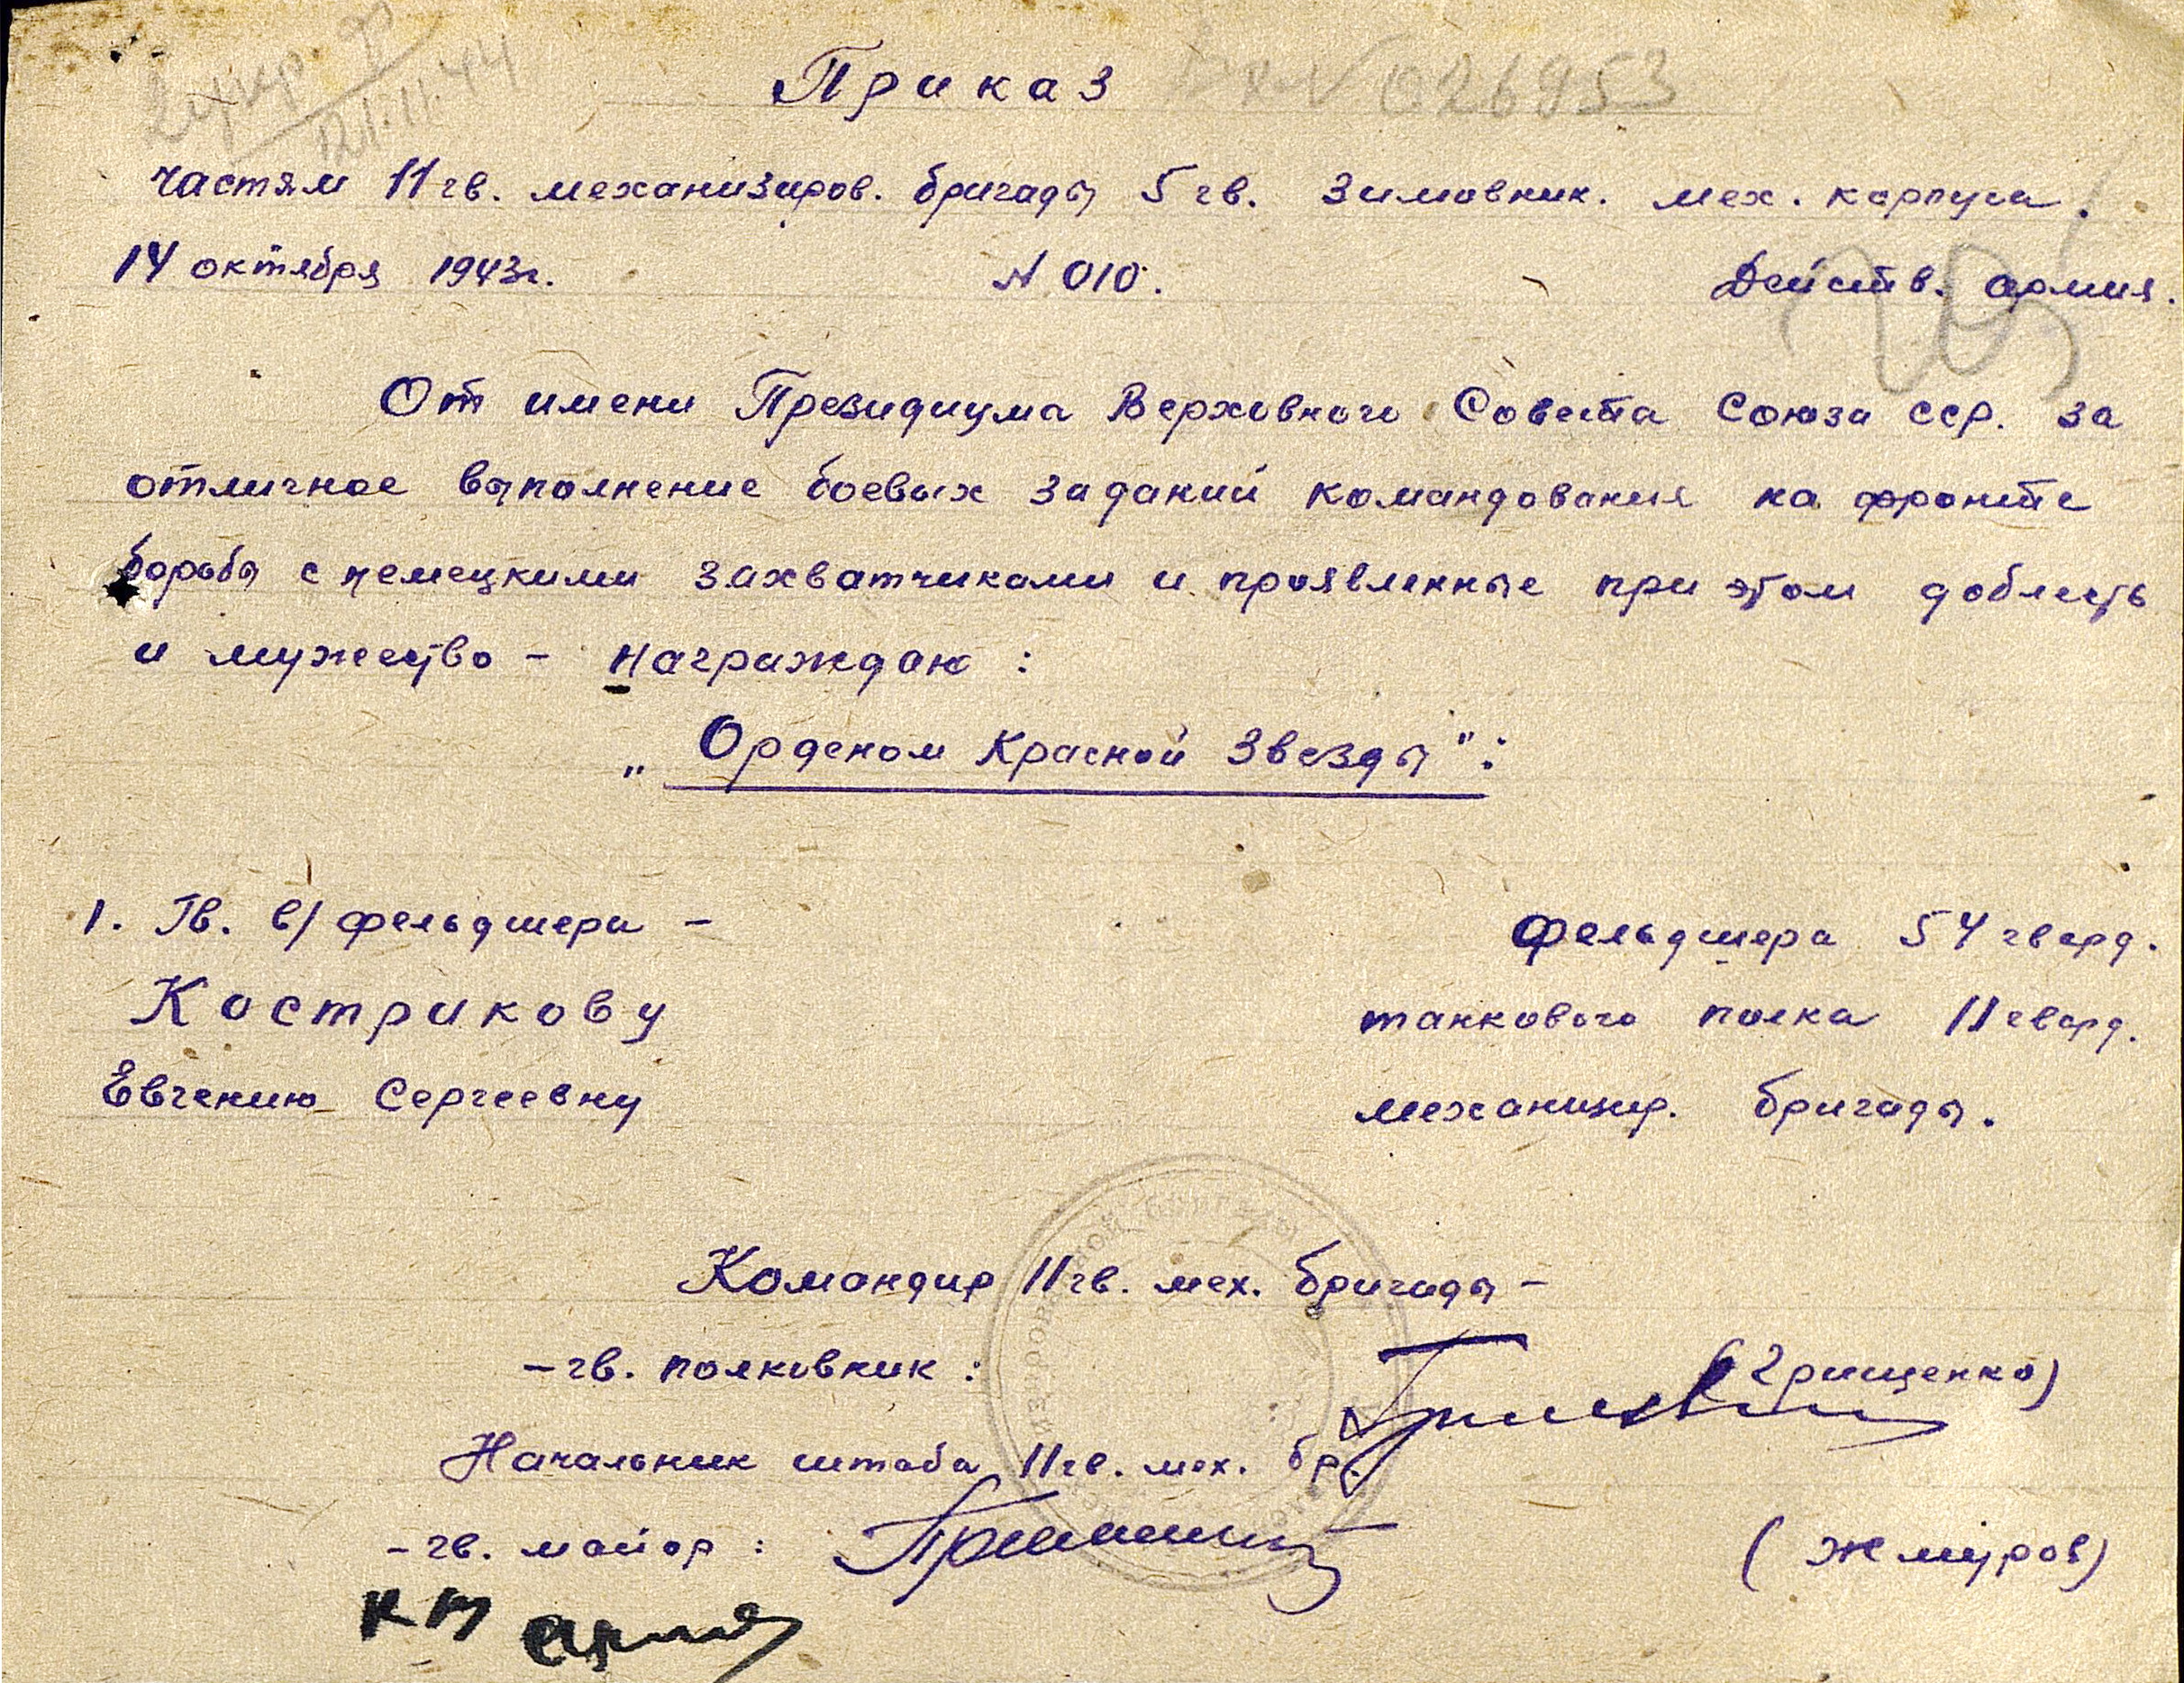 Приказ
Вх N 026953
21.11.44
частям 11 гв. механизиров. бригады 5 гв. Зимовник. мех. корпуса.
14 октября 1943г. N 010. Действ. армия.
От имени Президиума Верховного Совета Союза ССР. за
отличное выполнение боевых заданий командования на фронте
борьбы с немецкими захватчиками и проявленные при этом доблесть
и мужество – Награждаю :
„ Орденом Красной Звезды ":
1. Гв. в/фельдшера –
Кострикову
Евгению Сергеевну
Фельдшера 54 гвард.
танкового полка 11 гвард.
механизир. бригады.
Командир 11 гв. мех. бригады –
– гв. полковник : (Грищенко)
Начальник штаба 11 гв. мех. бр.
– гв. майор : (Жмуров)